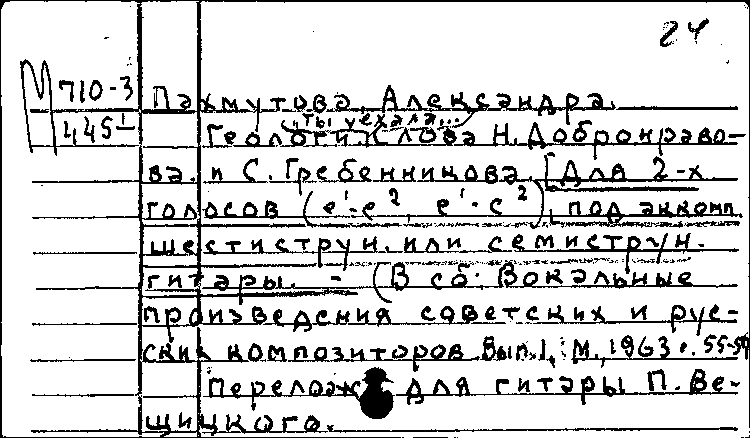 24
М 710-3
445¹
Пахмутова, Александра.
„Ты уехала...
Геологи. Слова Н. Добронраво-
ва и С. Гребенникова. [Для 2-х
голосов (e¹-e², e¹-c²), под аккомп.
шестиструн. или семиструн.
гитары. - (В сб: Вокальные
произведения советских и рус-
ских композиторов. Вып. 1, М., 1963 с. 55-59
Перелож для гитары П. Ве-
щицкого.